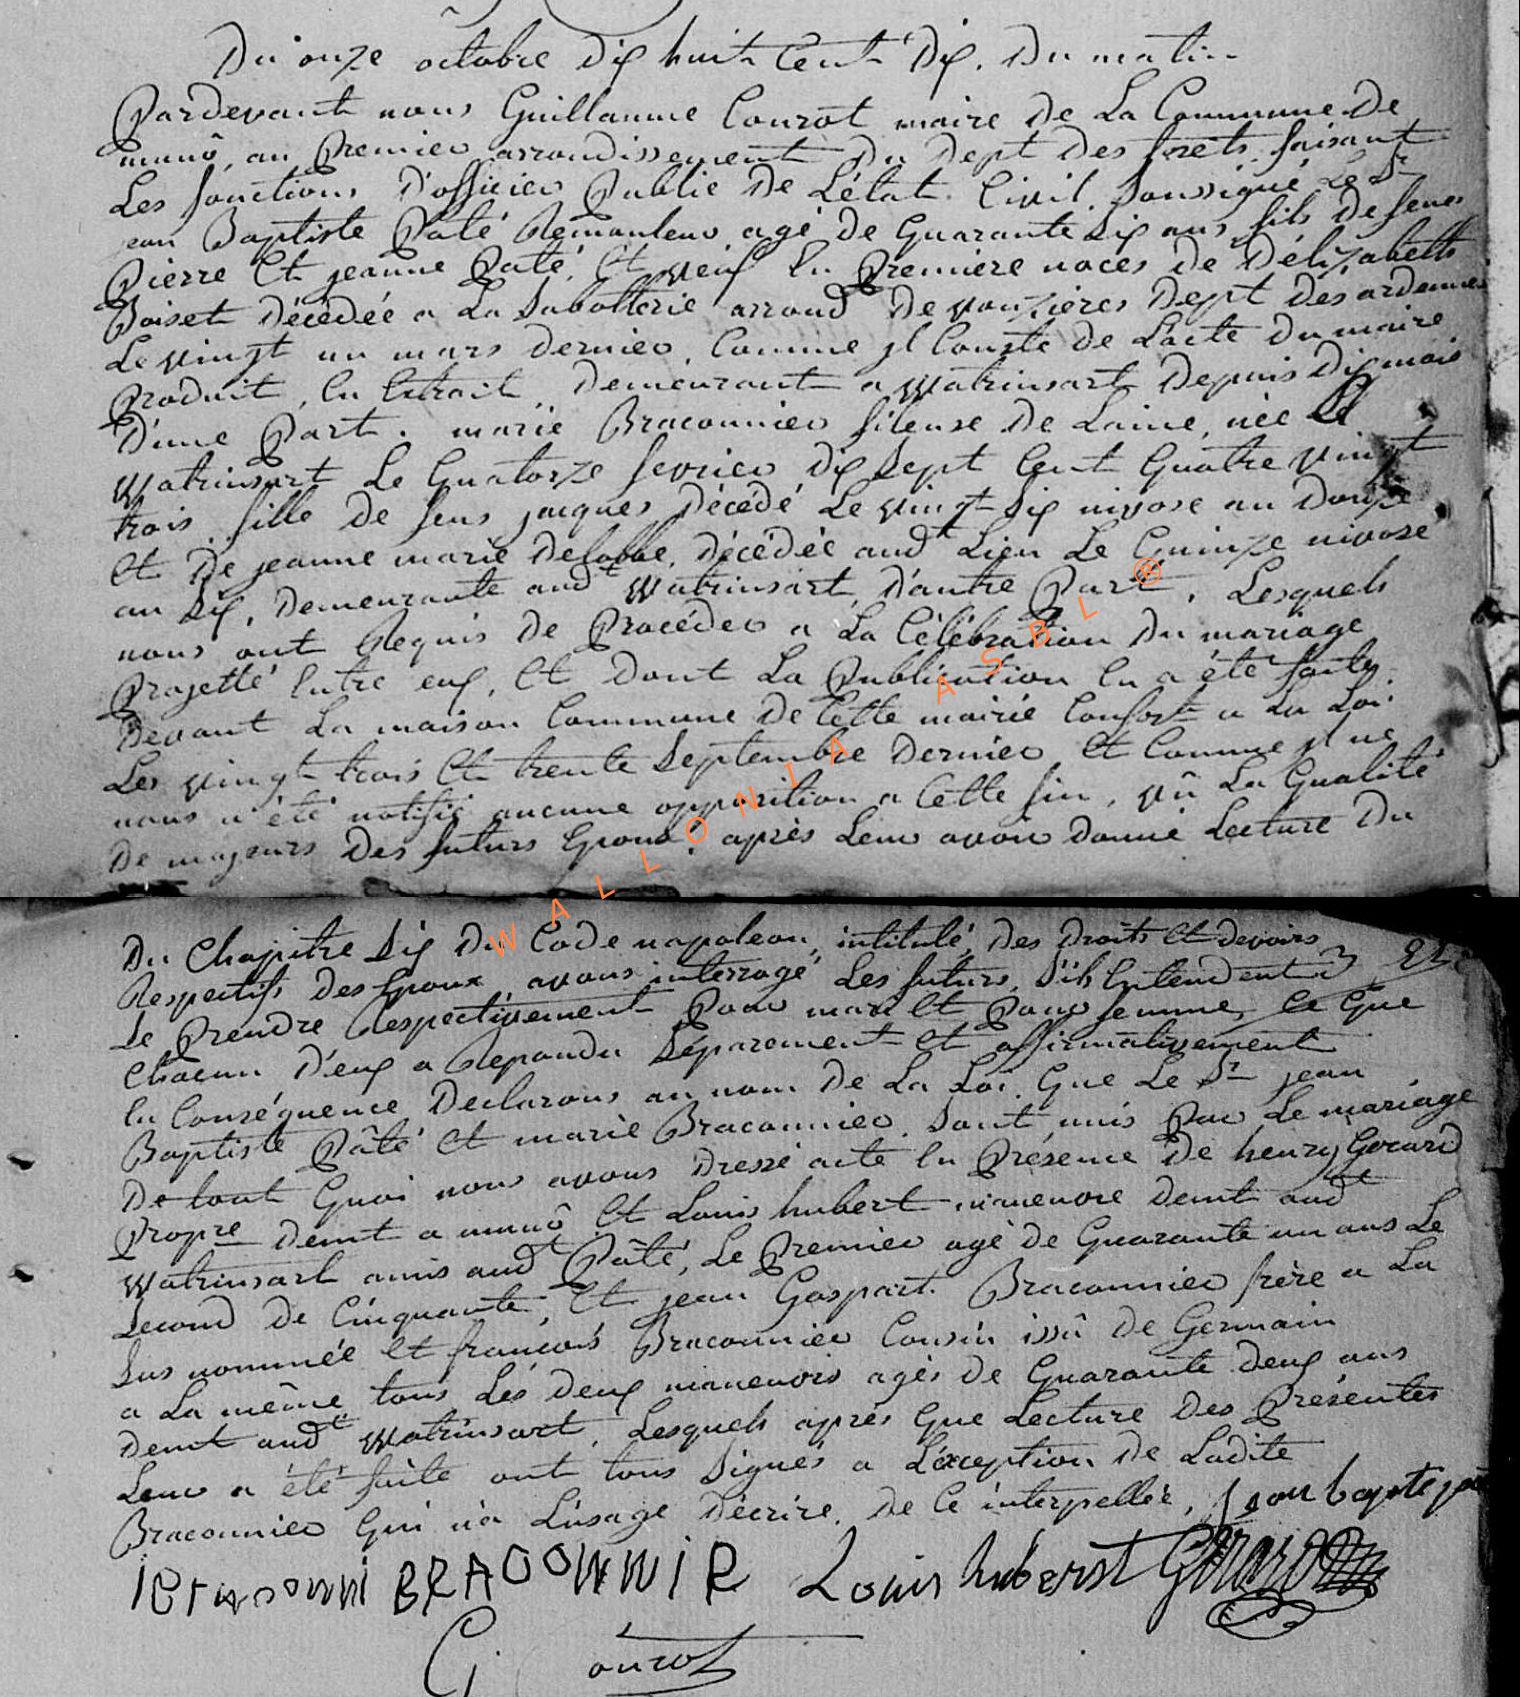 Du onze octobre dix huit Cent Dix. Du matin
Pardevant nous Guillaume Courot maire de La Commune De
muno, au Premier arrondissement Du Dept Des forets faisant
Les fonctions D'officier Public De L'état Civil soussigné Le Sr
jean Baptiste Pâté Remouleur agé de Quarante Six ans fils de feues
Pierre Et jeanne Paté, Et veuf En Premiere noces de Délizabeth
Poiset Décédée a La Sabotterie arrond De vouzieres Dept Des ardennes
Le vingt un mars Dernier, Comme jl Conste de Lacte Du maire
Produit, En Extrait, Demeurant a Watrinsart Depuis Dix mois
D'une Part. marie Braconnier fileuse De Laine, née
Watrinsart Le Quatorze fevrier dix Sept Cent Quatre vingt
trois fille de feus jacques Décédé Le vingt Six nivose an Douze
Et De jeanne marie, Décédée audt Lieu Le Quinze nivose
an Six, Demeurante audt Watrinsart, D'autre Part, Lesquels
nous ont Requis de Procéder a La Célébration Du mariage
Projetté Entre eux, Et Dont La Publication En a été faite
Devant La maison Commune De Cette mairie Conft a La Loi
Les vingt trois Et trente Septembre Dernier Et Comme jl ne
nous a été notifié aucune opposition a Cette fin, vû La Qualité
De majeurs Des futurs Epoux, après Leur avoir Donné Lecture Du
WALLONIA ASBL ®
Du Chapitre Six Du Code napoleon, intitulé, Des Droits Et Devoirs
Respectifs Des Epoux, avons interrogé Les futurs, S'ils Entendent
Se Prendre Respectivement Pour mari Et Pour femme, Ce Que
Chacun D'eux a Repondu Séparement Et affirmativement
En Conséquence Declarons au nom De La Loi, Que Le Sr jean
Baptiste Pâté Et marie Braconnier, Sont unis Par Le mariage
De tout Quoi nous avons Dressé acte En Présence De henry Gerard
Propre Demt a muno Et Louis hubert manenvre Demt audt
Watrinsart amis audt Pâté, Le Premier agé De Quarante un ans Le
Second De Cinquante, Et jean Gaspart Braconnier frère a La
Sus nommée Et francois Braconnier Cousin issû De Germain
a La même tous Les Deux manenvrs agés De Quarante Deux ans
Demt audt Watrinsart, Lesquels après Que Lecture Des Présentes
Leur a été faite ont tous Signés a L'exception De Ladite
Braconnier Qui n'a L'usage D'écrire, De Ce interpellée, Jean baptiste
BRACONNIR Louis huberst Gerard
G. Courot